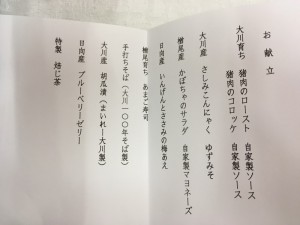 お献立
大川育ち 猪肉のロースト 自家製ソース
猪肉のコロッケ 自家製ソース
大川産 さしみこんにゃく ゆずみそ
楢尾産 かぼちゃのサラダ 自家製マヨネーズ
日向産 いんげんとささみの梅あえ
楢尾育ち あまご寿司
手打ちそば（大川一〇〇年そば製）
大川産 胡瓜漬（まいれー大川製）
日向産 ブルーベリーゼリー
特製 焙じ茶